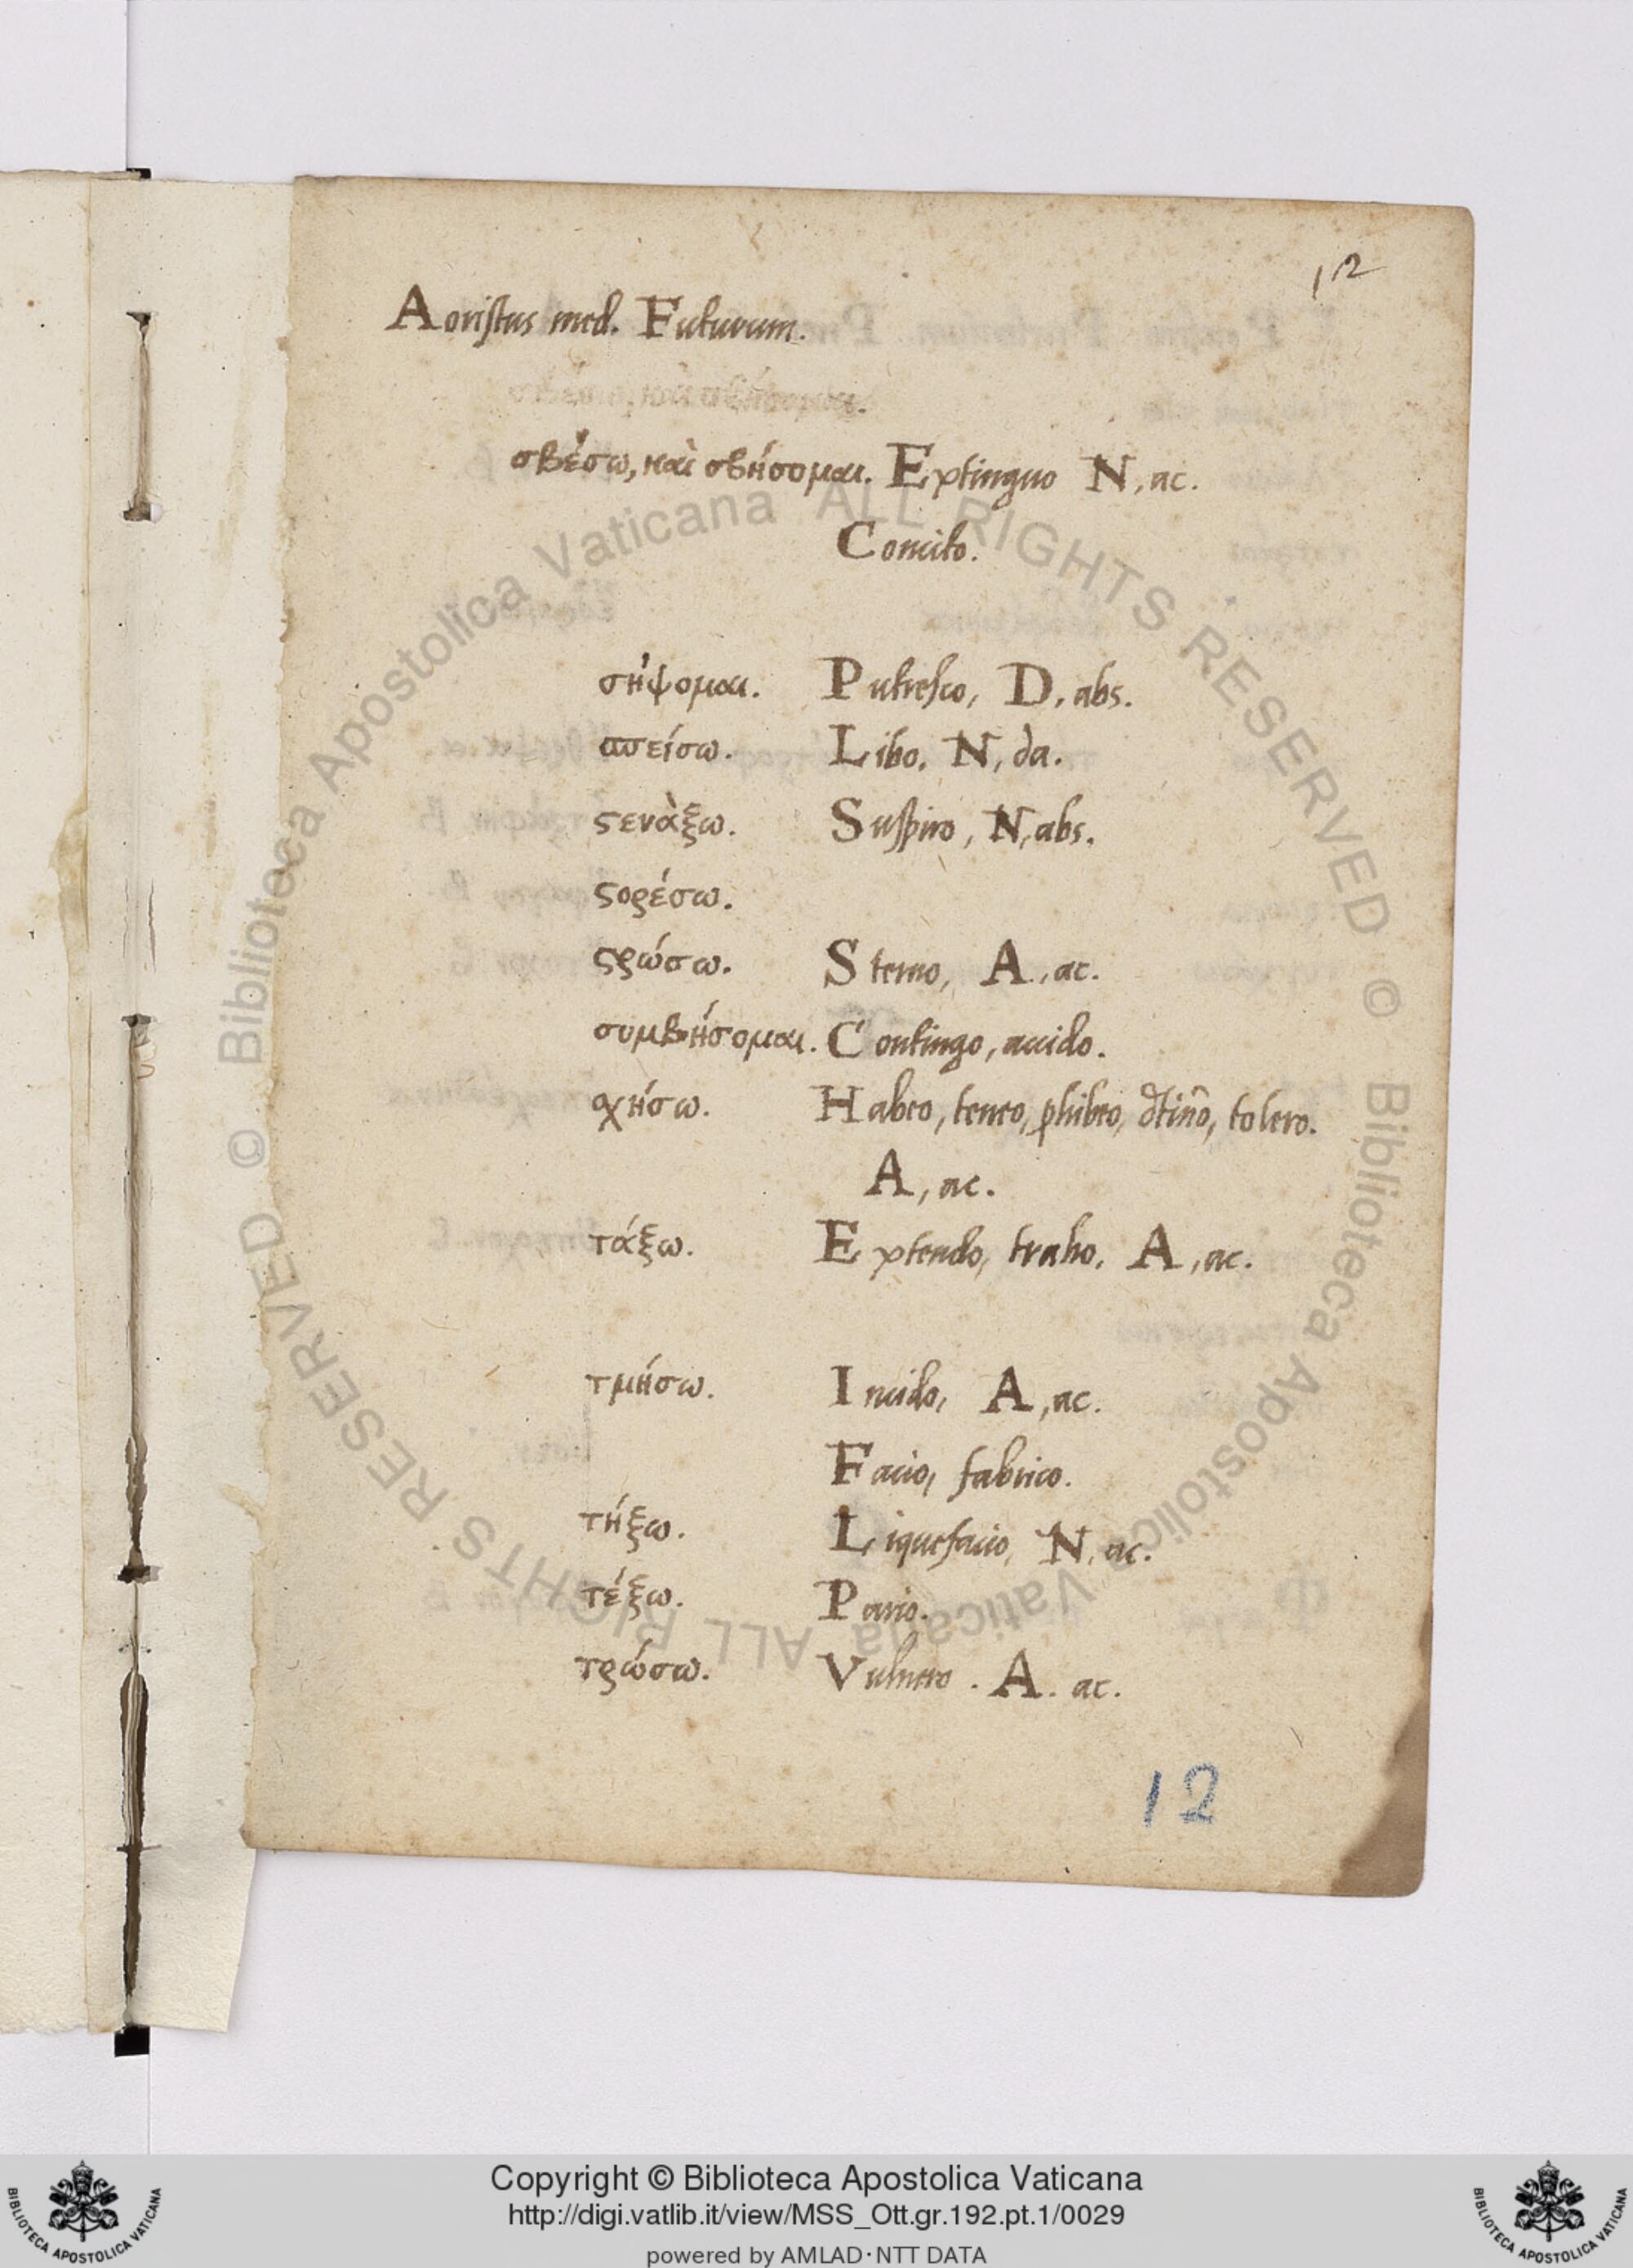 12
Aoristus med. Futurum.
σβέσω, καὶ σβήσομαι. Extinguo N, ac.
Concito.
σήψομαι. Putresco, D, abs.
σπείσω. Libo. N, da.
ϛενάξω. Suspiro, N, abs.
ϛορέσω.
ϛρώσω. Sterno, A, ac.
συμβήσομαι. Contingo, accido.
σχήσω. Habeo, teneo, ꝓhibeo, dtinẽo, tolero.
A, ac.
τάξω. Extendo, traho, A, ac.
τμήσω. Incido, A, ac.
Facio, fabrico.
τήξω. Liquefacio, N, ac.
τέξω. Pario.
τρώσω. Vulnero. A. ac.
12
© Biblioteca Apostolica Vaticana ALL RIGHTS RESERVED © Biblioteca Apostolica Vaticana ALL RIGHTS RESERVED
Copyright © Biblioteca Apostolica Vaticana
http://digi.vatlib.it/view/MSS_Ott.gr.192.pt.1/0029
powered by AMLAD·NTT DATA
BIBLIOTECA APOSTOLICA VATICANA
BIBLIOTECA APOSTOLICA VATICANA